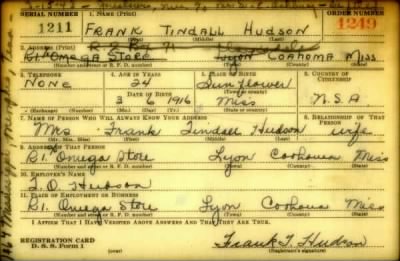 SERIAL NUMBER 1. NAME (Print) ORDER NUMBER
1211 FRANK TINDALL HUDSON 1249
(First) (Middle) (Last)
2. ADDRESS (Print)
R1. Omega Store Lyon Coahoma Miss
(Number and street or R. F. D. number) (Town) (County) (State)
3. TELEPHONE 4. AGE IN YEARS 5. PLACE OF BIRTH 6. COUNTRY OF CITIZENSHIP
None 24 Sunflower
DATE OF BIRTH
3 6 1916 Miss U.S.A
(Exchange) (Number) (Mo.) (Day) (Yr.) (State or country)
7. NAME OF PERSON WHO WILL ALWAYS KNOW YOUR ADDRESS 8. RELATIONSHIP OF THAT PERSON
Mrs Frank Tindall Hudson wife
(Mr., Mrs., Miss) (First) (Middle) (Last)
9. ADDRESS OF THAT PERSON
R1. Omega Store Lyon Coahoma Miss
(Number and street or R. F. D. number) (Town) (County) (State)
10. EMPLOYER'S NAME
T. O. Hudson
11. PLACE OF EMPLOYMENT OR BUSINESS
R1. Omega Store Lyon Coahoma Miss
(Number and street or R. F. D. number) (Town) (County) (State)
I AFFIRM THAT I HAVE VERIFIED ABOVE ANSWERS AND THAT THEY ARE TRUE.
REGISTRATION CARD
D. S. S. Form 1 (over) Frank T. Hudson
(Registrant's signature)